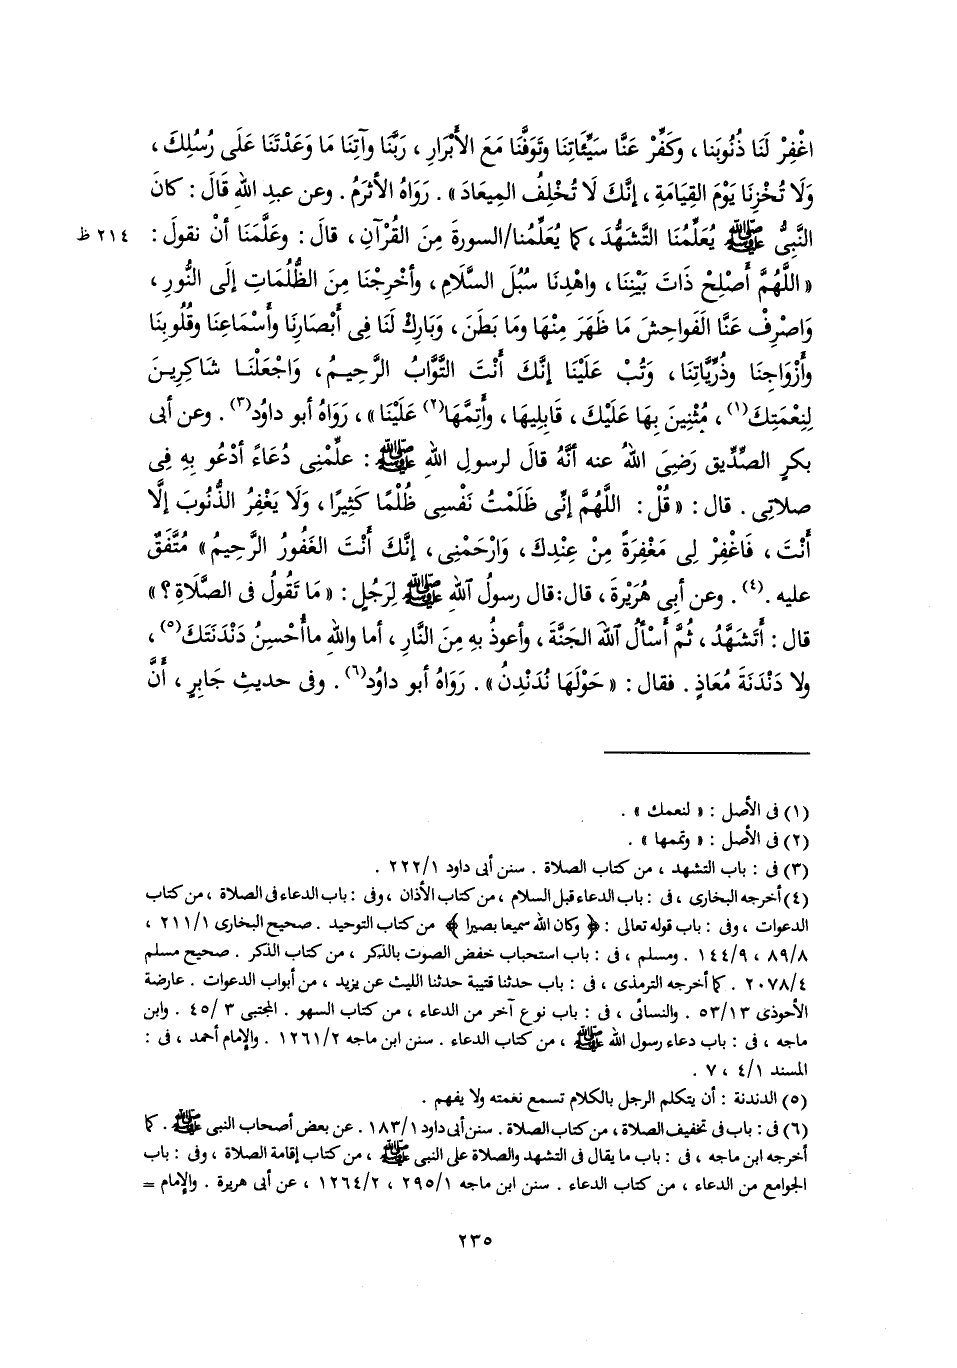 اغْفِرْ لَنَا ذُنُوبَنا ، وكَفِّرْ عَنَّا سَيِّئَاتِنَا وتَوَفَّنَا مَعَ الأَبْرَارِ ، رَبَّنَا وآتِنَا مَا وَعَدْتَنَا عَلَى رُسُلِكَ ،
وَلَا تُخْزِنَا يَوْمَ القِيَامَةِ ، إنَّكَ لَا تُخْلِفُ المِيعَادَ » . رَوَاهُ الأثرَمُ . وعن عبدِ اللهِ قَالَ : كانَ
النَّبِيُّ ﷺ يُعَلِّمُنَا التَّشَهُّدَ ، كما يُعَلِّمُنا/السورةَ مِنَ القُرْآنِ ، قالَ : وعَلَّمَنَا أنْ نقولَ : ٢١٤ ظ
« اللَّهُمَّ أَصْلِحْ ذَاتَ بَيْنِنَا ، واهْدِنَا سُبُلَ السَّلَامِ ، وأخْرِجْنَا مِنَ الظُّلُمَاتِ إلَى النُّورِ ،
وَاصْرِفْ عَنَّا الفَواحِشَ مَا ظَهَرَ مِنْهَا ومَا بَطَنَ ، وَبَارِكْ لَنَا فِى أَبْصَارِنَا وأَسْمَاعِنَا وقُلُوبِنَا
وأَزْوَاجِنَا وذُرِّيَّاتِنَا ، وَتُبْ عَلَيْنَا إنَّكَ أَنْتَ التَّوَّابُ الرَّحِيمُ ، وَاجْعَلْنَا شَاكِرِينَ
لِنِعْمَتِكَ(١) ، مُثْنِينَ بِهَا عَلَيْكَ ، قَابِلِيهَا ، وأَتِمَّهَا(٢) عَلَيْنَا » ، رَوَاهُ أبو داوُد(٣) . وعن أبى
بكرٍ الصِّدِّيقِ رَضِىَ اللهُ عنه أنَّهُ قالَ لرسولِ اللهِ ﷺ : علِّمْنِى دُعَاءً أدْعُو بِهِ فِى
صلاتِى . قال : « قُلْ : اللَّهُمَّ إنِّى ظَلَمْتُ نَفْسِى ظُلْمًا كَثِيرًا ، وَلَا يَغْفِرُ الذُّنُوبَ إلَّا
أَنْتَ ، فَاغْفِرْ لِى مَغْفِرَةً مِنْ عِنْدِكَ ، وَارْحَمْنِى ، إنَّكَ أَنْتَ الغَفُورُ الرَّحِيمُ » مُتَّفَقٌ
عليه .(٤) . وعن أبى هُرَيْرةَ ، قال:قال رسولُ اللهِ ﷺ لِرَجُلٍ : « مَا تَقُولُ فى الصَّلَاةِ ؟ »
قال : أَتَشَهَّدُ ، ثُمَّ أَسْأَلُ اللهَ الجَنَّةَ ، وأعوذُ بِهِ مِنَ النَّارِ ، أما واللهِ ماأُحْسِنُ دَنْدَنَتَكَ(٥) ،
ولا دَنْدَنَةَ مُعَاذٍ . فقال : « حَوْلَهَا نُدَنْدِنُ » . رَوَاهُ أبو داوُد(٦) . وفى حديثِ جَابِرٍ ، أنَّ
(١) فى الأصل : « لنعمك » .
(٢) فى الأصل : « وتممها » .
(٣) فى : باب التشهد ، من كتاب الصلاة . سنن أبى داود ٢٢٢/١ .
(٤) أخرجه البخارى ، فى : باب الدعاء قبل السلام ، من كتاب الأذان ، وفى : باب الدعاء فى الصلاة ، من كتاب
الدعوات ، وفى : باب قوله تعالى : ﴿ وكان الله سميعا بصيرا ﴾ من كتاب التوحيد . صحيح البخارى ٢١١/١ ،
٨٩/٨ ، ١٤٤/٩ . ومسلم ، فى : باب استحباب خفض الصوت بالذكر ، من كتاب الذكر . صحيح مسلم
٢٠٧٨/٤ . كما أخرجه الترمذى ، فى : باب حدثنا قتيبة حدثنا الليث عن يزيد ، من أبواب الدعوات . عارضة
الأحوذى ٥٣/١٣ . والنسائى ، فى : باب نوع آخر من الدعاء ، من كتاب السهو . المجتبى ٣ /٤٥ . وابن
ماجه ، فى : باب دعاء رسول الله ﷺ ، من كتاب الدعاء . سنن ابن ماجه ١٢٦١/٢ . والإمام أحمد ، فى :
المسند ٤/١ ، ٧ .
(٥) الدندنة : أن يتكلم الرجل بالكلام تسمع نغمته ولا يفهم .
(٦) فى : باب فى تخفيف الصلاة ، من كتاب الصلاة . سنن أبى داود ١٨٣/١ . عن بعض أصحاب النبى ﷺ . كما
أخرجه ابن ماجه ، فى : باب ما يقال فى التشهد والصلاة على النبى ﷺ ، من كتاب إقامة الصلاة ، وفى : باب
الجوامع من الدعاء ، من كتاب الدعاء . سنن ابن ماجه ٢٩٥/١ ، ١٢٦٤/٢ ، عن أبى هريرة . والإمام =
٢٣٥